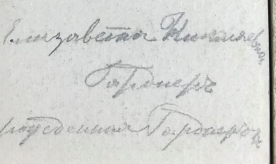 Елизавета Николаевна
Гарднеръ
урожденная Гарднеръ